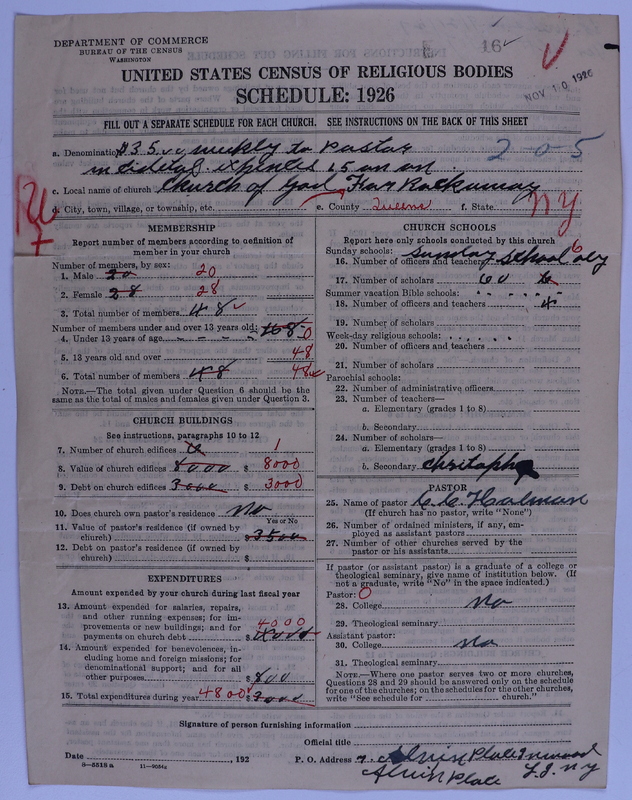 DEPARTMENT OF COMMERCE
BUREAU OF THE CENSUS
WASHINGTON
16
UNITED STATES CENSUS OF RELIGIOUS BODIES
SCHEDULE: 1926
NOV 10 1926
FILL OUT A SEPARATE SCHEDULE FOR EACH CHURCH. SEE INSTRUCTIONS ON THE BACK OF THIS SHEET
a. Denomination $35.00 weekly to Pastor
205
expenses 15 an
c. Local name of church Church of God Far Rockaway
d. City, town, village, or township, etc. e. County Queens f. State NY
MEMBERSHIP
Report number of members according to definition of member in your church
Number of members, by sex:
1. Male 20 20
2. Female 28 28
3. Total number of members 48
Number of members under and over 13 years old:
4. Under 13 years of age 0
5. 13 years old and over 48
6. Total number of members 48 48
NOTE.—The total given under Question 6 should be the same as the total of males and females given under Question 3.
CHURCH BUILDINGS
See instructions, paragraphs 10 to 12
7. Number of church edifices 1
8. Value of church edifices 8000 $ 8000
9. Debt on church edifices 3000 $ 3000
10. Does church own pastor's residence? No
Yes or No
11. Value of pastor's residence (if owned by church) $ 3500
12. Debt on pastor's residence (if owned by church) $
EXPENDITURES
Amount expended by your church during last fiscal year
13. Amount expended for salaries, repairs, and other running expenses; for improvements or new buildings; and for payments on church debt $ 4000
14. Amount expended for benevolences, including home and foreign missions; for denominational support; and for all other purposes $ 800
15. Total expenditures during year 4800 $
CHURCH SCHOOLS
Report here only schools conducted by this church
Sunday schools: Sunday School
16. Number of officers and teachers 6
17. Number of scholars 60
Summer vacation Bible schools:
18. Number of officers and teachers
19. Number of scholars
Week-day religious schools:
20. Number of officers and teachers
21. Number of scholars
Parochial schools:
22. Number of administrative officers
23. Number of teachers—
a. Elementary (grades 1 to 8)
b. Secondary
24. Number of scholars—
a. Elementary (grades 1 to 8)
b. Secondary
PASTOR
25. Name of pastor
(If church has no pastor, write "None")
26. Number of ordained ministers, if any, employed as assistant pastors
27. Number of other churches served by the pastor or his assistants
If pastor (or assistant pastor) is a graduate of a college or theological seminary, give name of institution below. (If not a graduate, write "No" in the space indicated.)
Pastor: 0
28. College No
29. Theological seminary
Assistant pastor:
30. College No
31. Theological seminary
NOTE.—Where one pastor serves two or more churches, Questions 28 and 29 should be answered only on the schedule for one of the churches; on the schedules for the other churches, write "See schedule for church."
Signature of person furnishing information
Official title
Date , 192 P. O. Address Alvin Place Inwood
8—5518 a 11—9084a Alvin Place L.I. N.Y